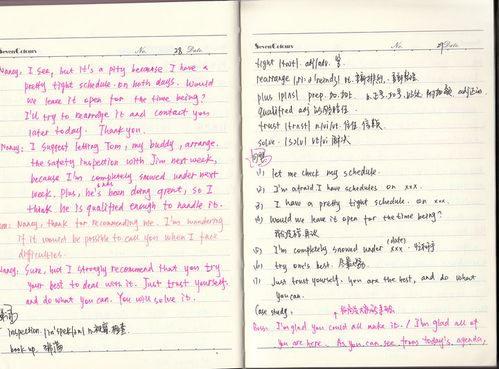 SevenColours No. 28 Date
Nancy: I see, but it's a pity because I have a
pretty tight schedule on both days. Would
we leave it open for the time being?
I'll try to rearrange it and contact you
later today. Thank you.
Nancy: I suggest letting Tom, my buddy, arrange
the safety inspection with Jim next week,
because I'm completely snowed under next
week. Plus, he's been doing great, so I
think he is qualified enough to handle it.
Tom: Nancy, thank for recommending me. I'm wondering
if it would be possible to call you when I face
difficulties.
Nancy: Sure, but I strongly recommend that you try
your best to deal with it. Just trust yourself.
and do what you can. You will solve it.
inspection n. 检查
book up
SevenColours No. 29 Date
tight adj/adv. 紧
rearrange vt. 重新排列
plus prep. 加
qualified adj
trust n/vi/vt. 信任
solve vt/vi 解决
(1) let me check my schedule.
(2) I'm afraid I have schedules on xxx.
(3) I have a pretty tight schedule on xxx.
(4) Would we leave it open for the time being?
(5) I'm completely snowed under xxx. (date)
(6) try one's best. 尽最
(7) Just trust yourself. you are the test, and do what
you can.
Case study.
Russ: I'm glad you could all make it. / I'm glad all of
you are here. As you can see from today's agenda,